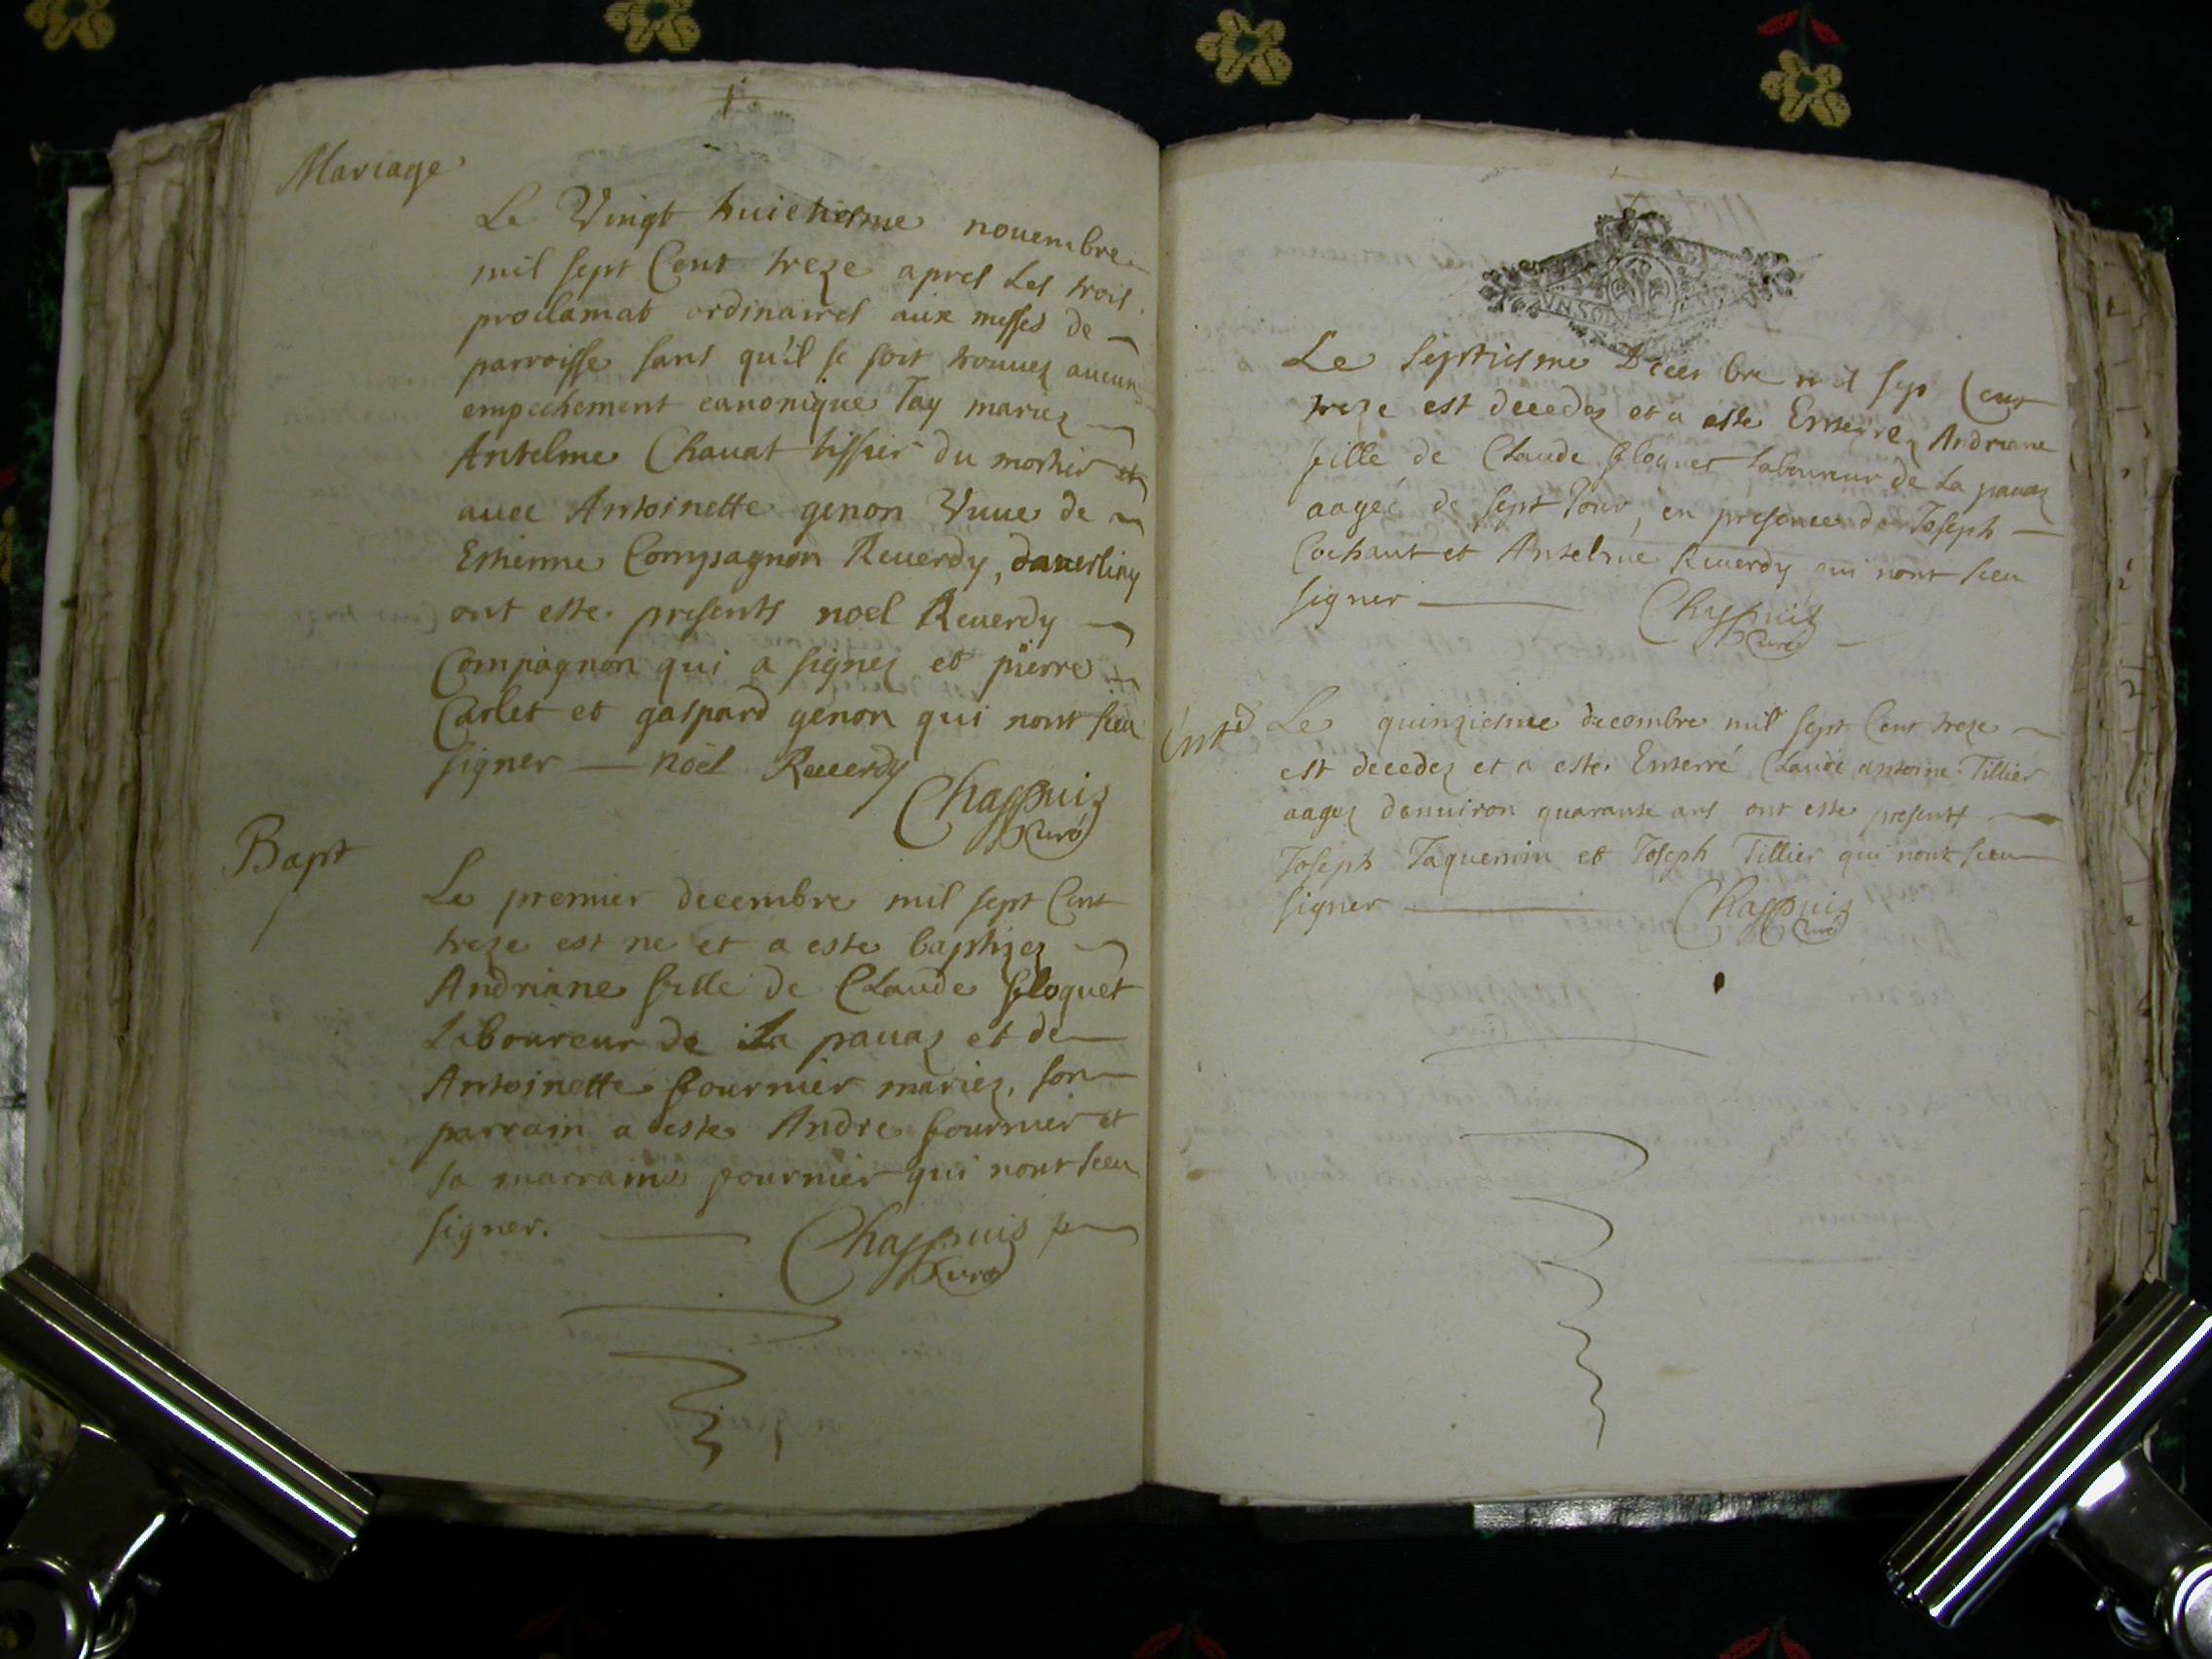 Mariage
Le Vingt huictiesme nouembre
mil sept Cent treze apres Les trois
proclamat ordinaires aux messes de
parroisse sans qu'il se soit trouuez aucun
empechement canonique Jay mariez
Antelme Chauat tissier du mortier et
auec Antoinette genon Vuue de
Estienne Compagnon Reuerdy,
ont este presents noel Reuerdy
Compagnon qui a signez et pierre
Carlet et gaspard genon qui nont sceu
signer noel Reuerdy
Chappuis
Curé
Bapt
Le premier decembre mil sept Cent
treze est ne et a este baptizez
Andriane fille de Claude floquet
Laboureur de La pauaz et de
Antoinette fournier mariez, son
parrain a este Andre fournier et
sa marraine fournier qui nont sceu
signer. Chappuis
Curé
Le septiesme Decembre mil sep Cent
treze est decedez et a este Enterrez Andriane
fille de Claude floquet laboureur de La pauaz
aagée de sept Jour, en presence de Joseph
Cochant et Antelme Reuerdy qui nont sceu
signer Chappuis
Curé
Ent
Le quinziesme decembre mil sept Cent treze
est decedez et a este Enterré Claude antoine Tillier
aagez denuiron quarante ans ont este presents
Joseph Jaquemin et Joseph Tillier qui nont sceu
signer Chappuis
Curé